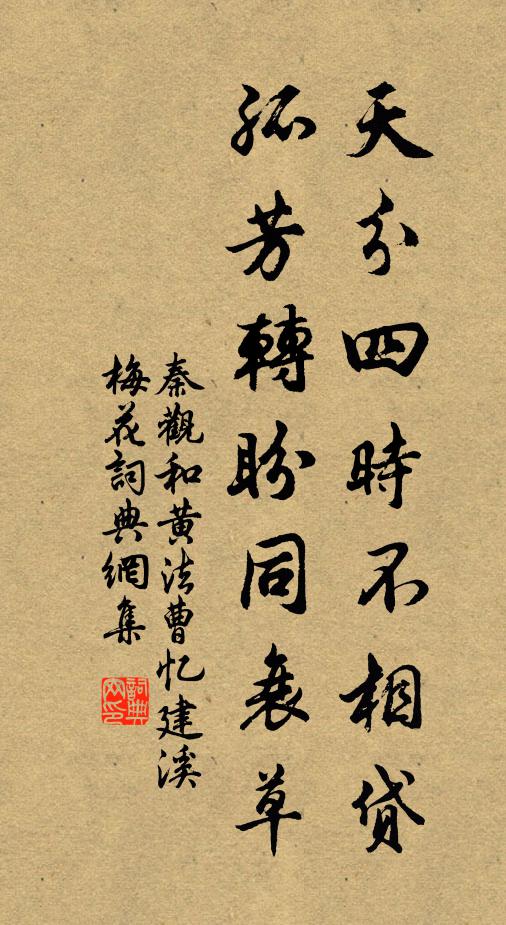 天分四時不相貸
孤芳轉盼同衰草
秦觀和黃法曹忆建溪
梅花詞典網集
詞典
网印